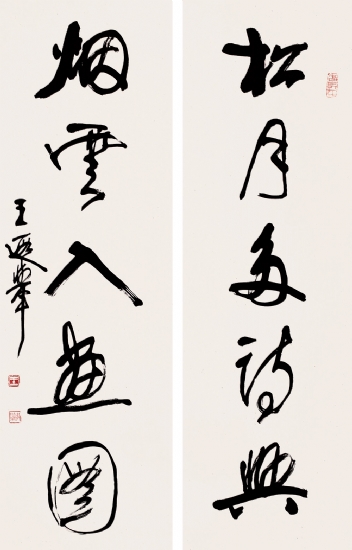 松月多詩興
烟雲入畫圖
王遐舉